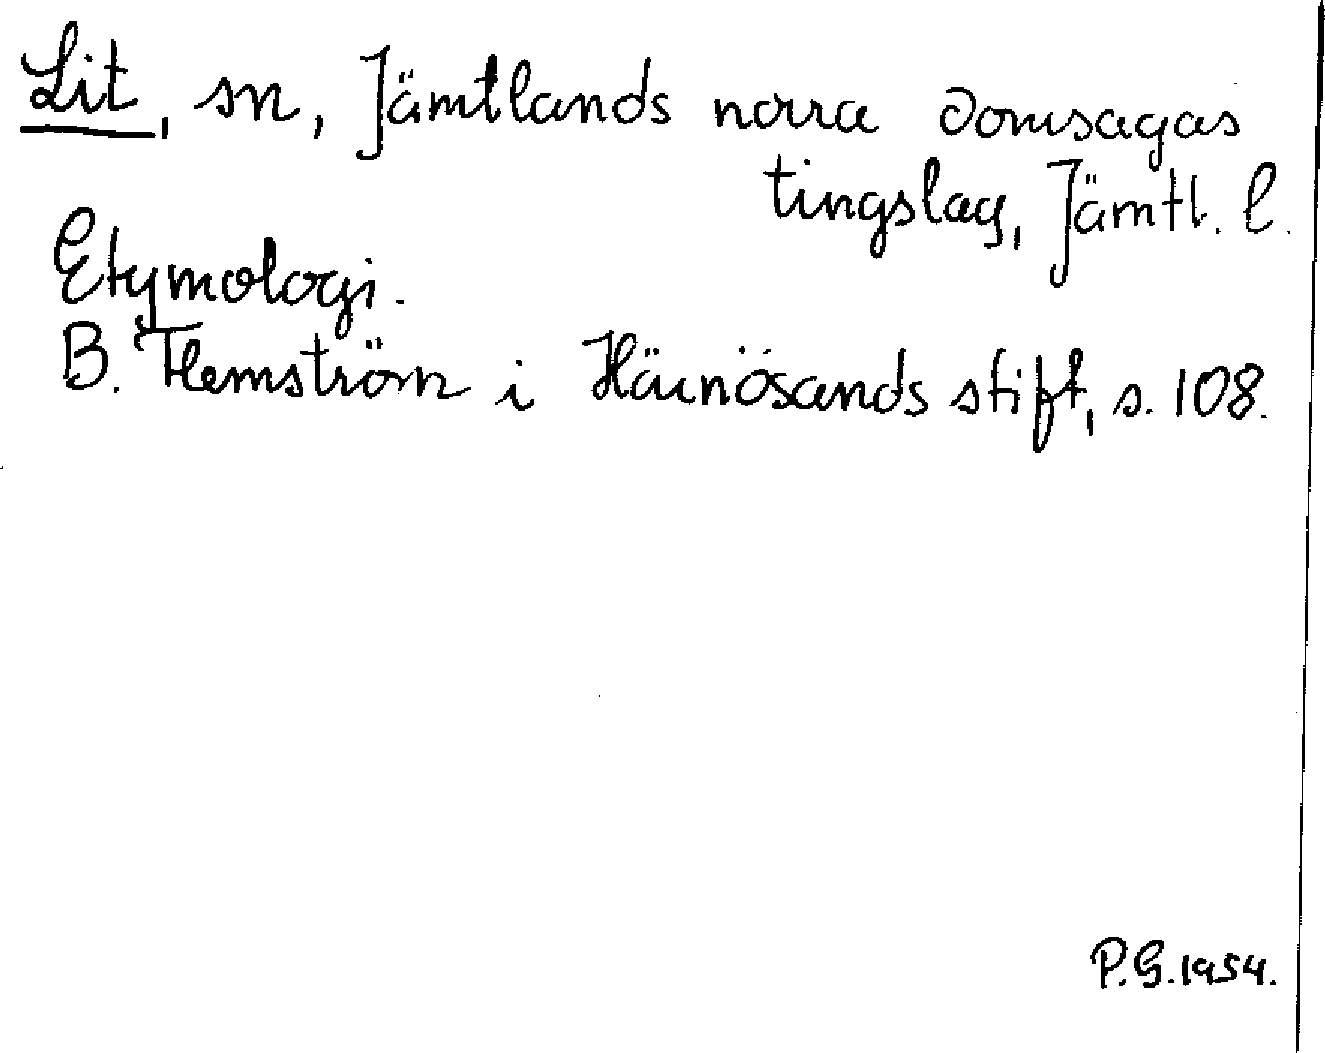 Lit, sn, Jämtlands norra domsagas
tingslag, Jämtl. l.
Etymologi.
B. Flemström i Härnösands stift, s. 108.
P.G. 1954.